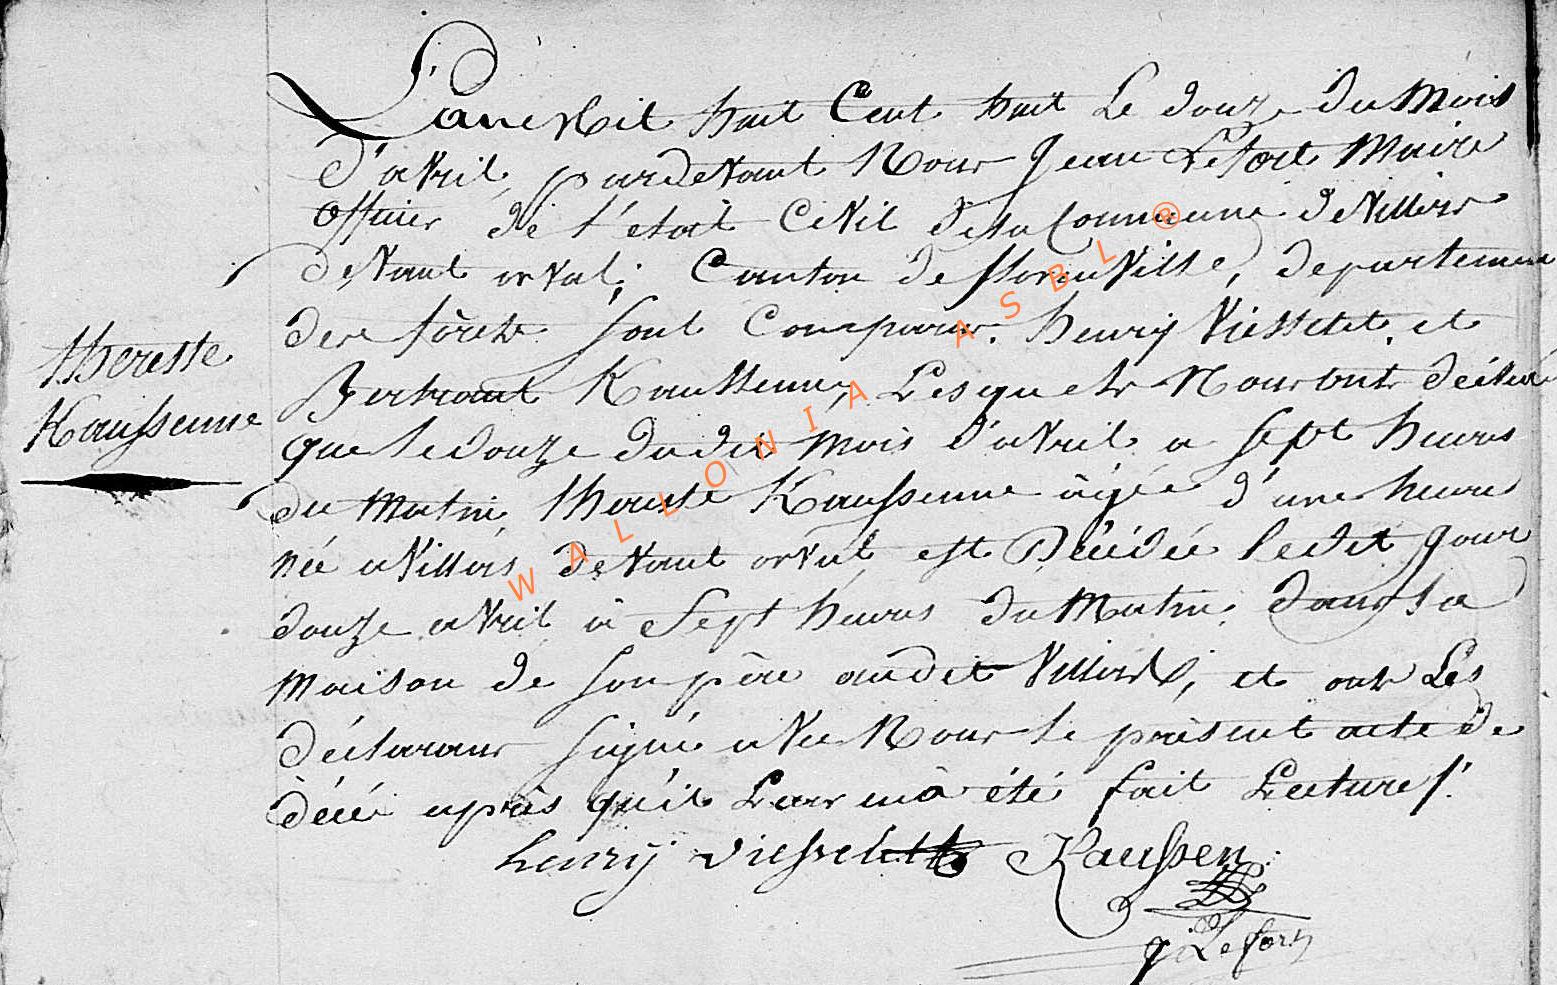 L'an mil huit Cent huit Le douze du Mois
d'avril, pardevant Nous Jean Lefort Maire
Officier de l'état Civil de la Commune de Villers
devant orval, Canton de florenville, departement
des forêts sont Comparus. henry Viesselet. et
Thereste
Bertrant Kaussenne, Lesquels Nous ont déclaré
Kaussenne
que le douze dudit mois d'avril a sept heures
du Matin, thereste Kaussenne âgée d'une heure
née a Villers devant orval est Décédée ledit Jour
douze avril à Sept heures du Matin, dans la
maison de son père audit Villers, et ont Les
déclarans signé avec Nous le présent acte de
décé après qu'il Leur en a été fait Lecture.
henrÿ viesselet Kaussen
j Lefort
WALLONIA ASBL ®